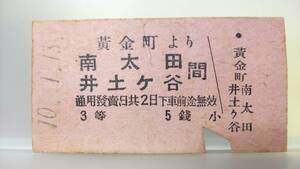 黄金町より
南太田
井土ヶ谷
間
通用發賣日共2日下車前途無效
3等 5錢 小
10.1.15
黄金町 南太田
井土ヶ谷